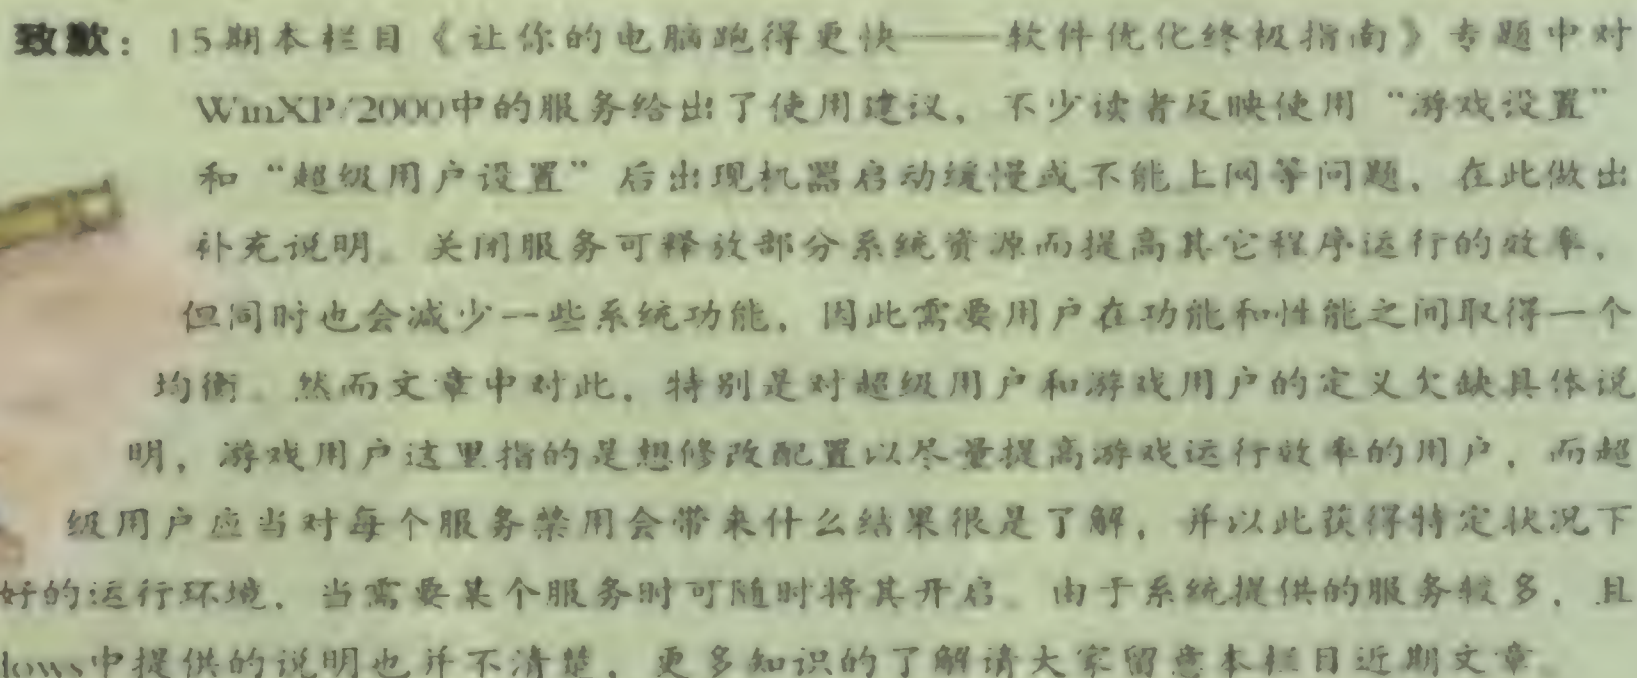 致歉：15期本栏目《让你的电脑跑得更快——软件优化终极指南》专题中对
WinXP/2000中的服务给出了使用建议，不少读者反映使用“游戏设置”
和“超级用户设置”后出现机器启动缓慢或不能上网等问题，在此做出
补充说明。关闭服务可释放部分系统资源而提高其它程序运行的效率，
但同时也会减少一些系统功能，因此需要用户在功能和性能之间取得一个
均衡。然而文章中对此，特别是对超级用户和游戏用户的定义欠缺具体说
明，游戏用户这里指的是想修改配置以尽量提高游戏运行效率的用户，而超
级用户应当对每个服务禁用会带来什么结果很是了解，并以此获得特定状况下
好的运行环境，当需要某个服务时可随时将其开启。由于系统提供的服务较多，且
dows中提供的说明也并不清楚，更多知识的了解请大家留意本栏目近期文章。